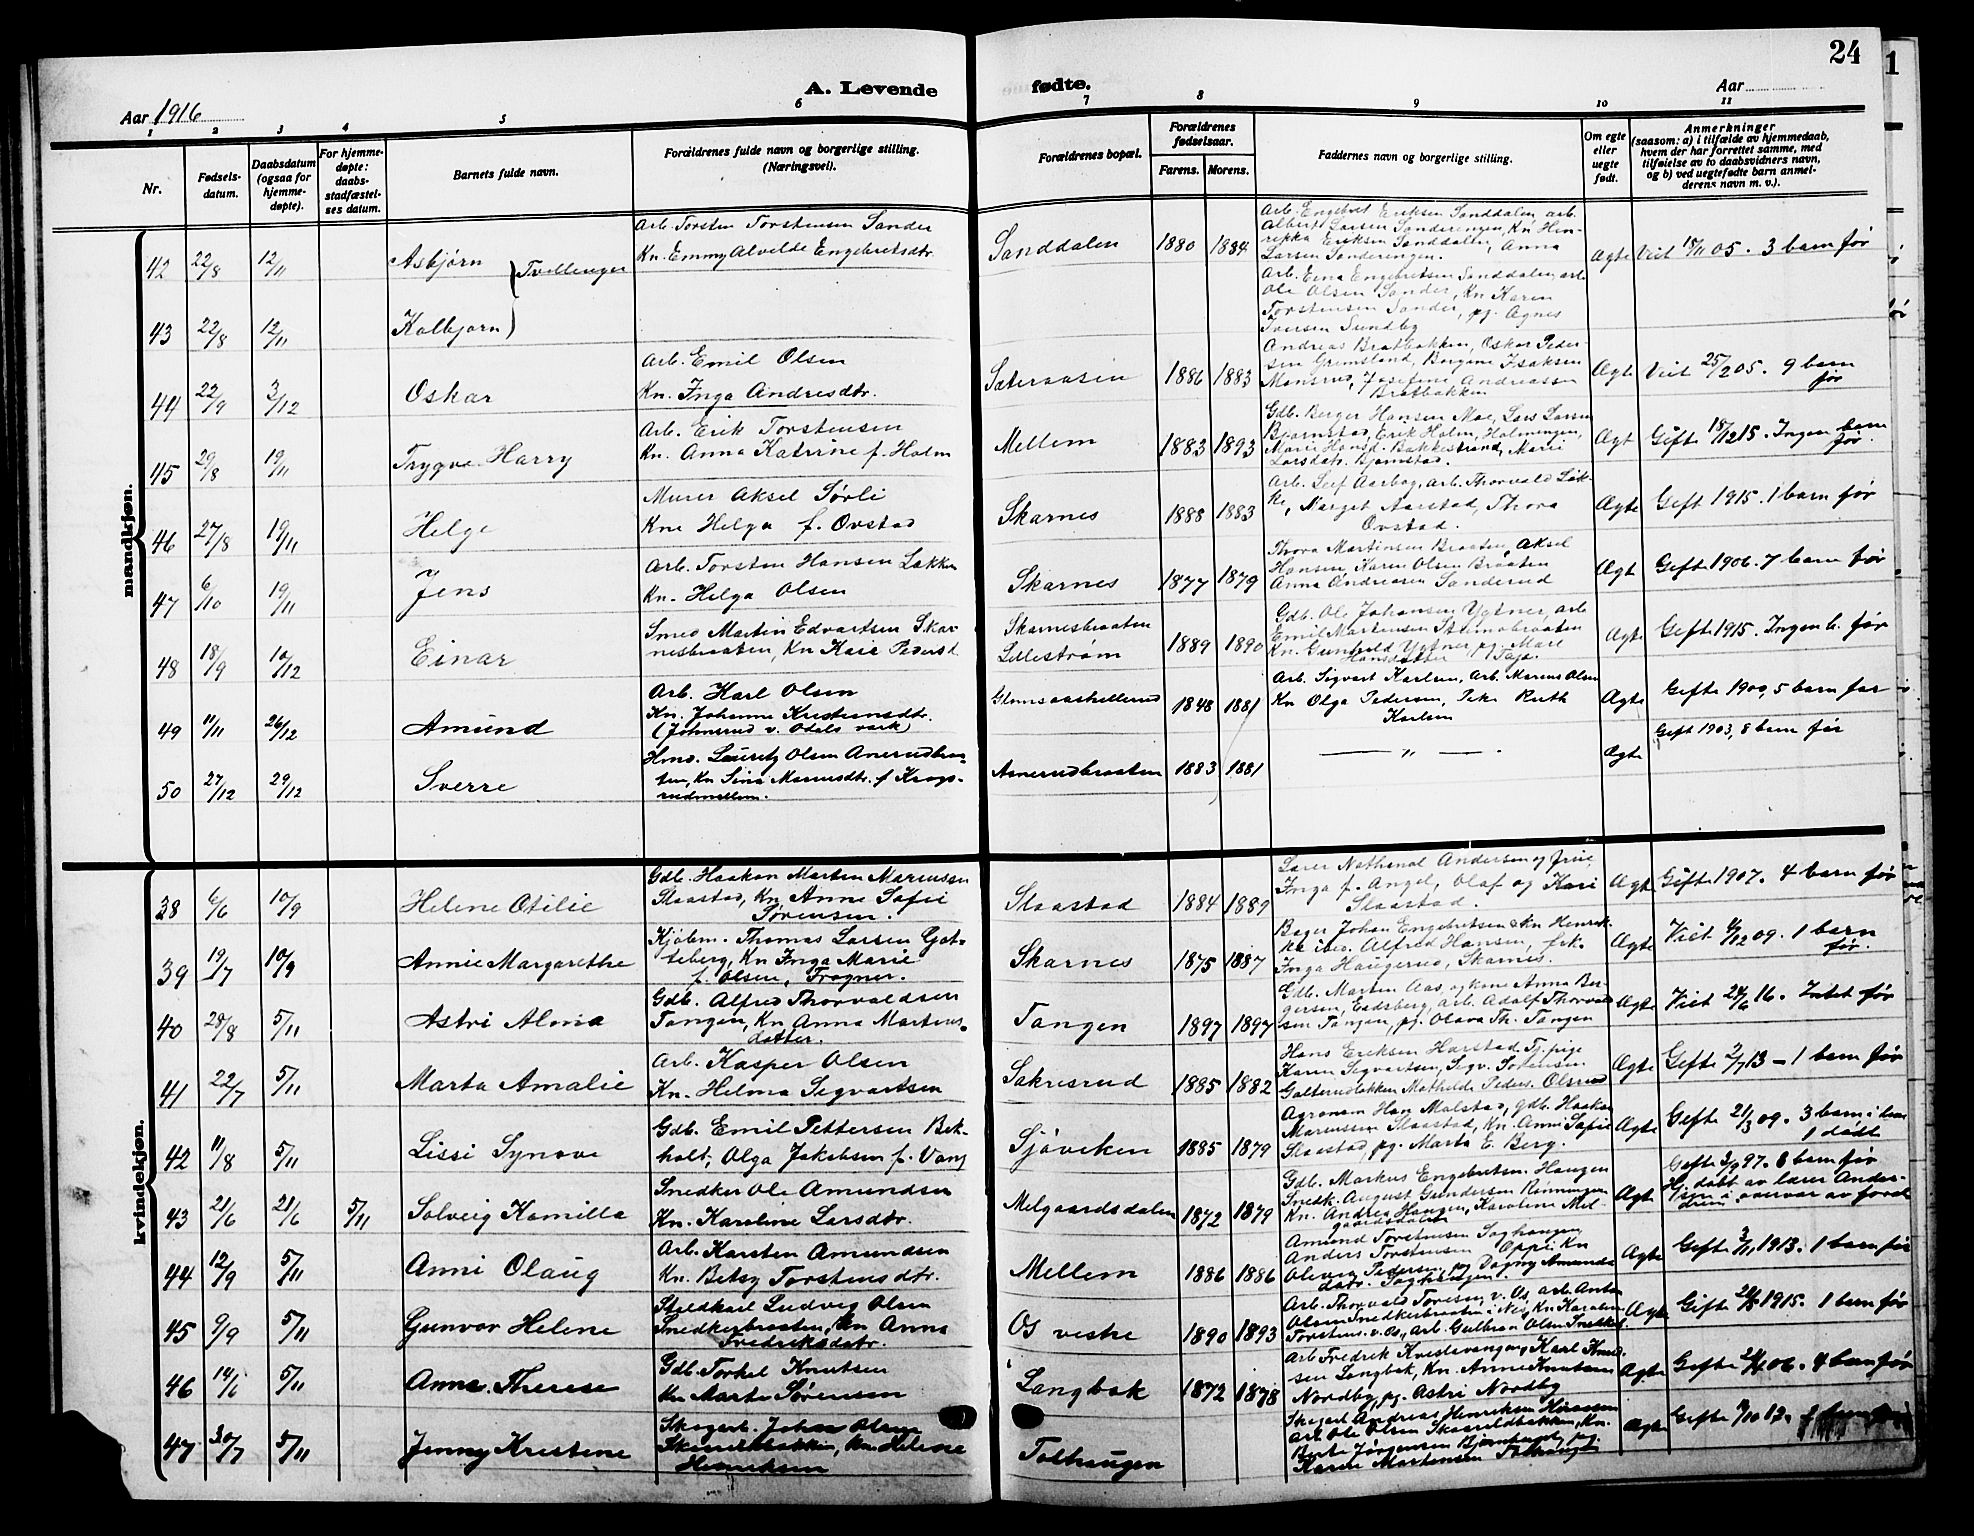 24
1
A. Levende fødte.
Aar 1916
Aar
1 2 3 4 5 6 7 8 9 10 11
Nr.
Fødsels-
datum.
Daabsdatum
(ogsaa for
hjemme-
døpte).
For hjemme-
døpte:
daabs-
stadfæstel-
ses datum.
Barnets fulde navn.
Forældrenes fulde navn og borgerlige stilling.
(Næringsvei).
Forældrenes bopæl.
Forældrenes
fødselsaar.
Farens. Morens.
Faddernes navn og borgerlige stilling.
Om egte
eller
uegte
født.
Anmerkninger
(saasom: a) i tilfælde av hjemmedaab,
hvem der har forrettet samme, med
tilføielse av to daabsvidners navn,
og b) ved uegtefødte barn anmel-
derens navn m. v.).
mandkjøn.
42 22/8 12/11 Asbjørn } Tvillinger
Arb. Torsten Torstensen Sander
Kn. Emmy Alvilde Engebretsdtr.
Sanddalen 1880 1884
Arb. Engebret Eriksen Sanddalen, arb.
Albert Larsen Sanderengen, Kn Hen-
rikka Eriksen Sanddalen, Anna
Larsen Sanderengen.
Ægte Viet 18/11 05. 3 barn før
43 22/8 12/11 Kolbjørn
Arb. Einar Engebretsen Sanddalen, arb.
Ole Olsen Sander, Kn Karen
Torstensen Sander, pg. Agnes
Iversen Sundby
44 22/9 3/12 Oskar
Arb. Emil Olsen
Kn. Inga Andresdtr.
Sæteraasen 1886 1883
Andreas Bratbakken, Oskar Peder-
sen Grimsland, Bergine Isaksen
Monsrud, Josefine Andreassen
Bratbakken
Ægt Viet 25/2 05. 9 barn
før
45 29/8 19/11 Trygve Harry
Arb. Erik Torstensen
Kn. Anna Katrine f. Holm
Mellem 1883 1893
Gdb. Berger Hansen Moe, Lars Larsen
Bjørnstad, Erik Holm, Holmengen,
Marie Hansd. Bakkestrand, Marie
Larsdatr. Bjørnstad.
Ægt Gifte 18/12 15. Ingen barn
før.
46 27/8 19/11 Helge
Murer Aksel Sørli
Kne Helga f. Ovstad
Skarnes 1888 1883
Arb. Leif Aarbog, arb. Thorvald Løk-
ke, Marget Aarstad, Thora
Ovstad.
Ægte Gift 1915. 1 barn før
47 6/10 19/11 Jens
Arb. Torsten Hansen Løkken
Kn. Helga Olsen
Skarnes 1877 1879
Thora Martinsen Braaten, Aksel
Hansen, Karen Olsen Braaten
Anna Andreasen Sanderud
Ægt Gifte 1906. 7 barn før
48 18/9 10/12 Einar
Smed Martin Edvartsen Skar-
nesbraaten, Kn Kari Pedersd.
Skarnesbraaten
Lillestrøm 1889 1890
Gdb. Ole Johansen Ygtner, arb.
Emil Martinsen Stumobraaten
Kn. Gunhild Ygtner, pg. Mari
Hansdatter
Ægte Gifte 1915. Ingen b. før
49 11/11 26/12 Amund
Arb. Karl Olsen
Kn. Johanne Kristiansdtr.
(Johnsrud v. Odals værk)
1848 1881
Arb. Sigvart Karlsen, Arb. Marcus Olsen
Kn Olga Pedersen, Pike Ruth
Karlsen
Ægte Gifte 1900, 5 barn før
50 27/12 29/12 Sverre
Hmd. Lauritz Olsen Anerudbraa-
ten, Kn Sina Mariusdtr. f Krogs-
rudmellem.
Anerudbraaten 1883 1881
— " —
Ægte
Gift 1903, 8 barn før
kvindekjøn.
38 6/6 10/9 Helene Otilie
Gdb. Haakon Marten Marensen
Slaastad, Kn Anne Sofie
Sørensen.
Slaastad 1884 1889
Lærer Nathanal Andersen og frue
Inga f. Angel, Olaf og Kari
Slaastad.
Ægt Gifte 1907. 4 barn før
39 19/7 10/9 Annie Margarethe
Kjøbm. Thomas Larsen Got-
teberg, Kn Inga Marie
f. Olsen, Frogner.
Skarnes 1875 1887
Bager Johan Engebretsen & kn Henrik-
ke ibid. Alfred Hansen, frk.
Inga Haugerud, Skarnes.
Ægte Viet 6/12 09. 1 barn
før.
40 28/8 5/11 Astri Alma
Gdb. Alfred Thorvaldsen
Tangen, Kn Anna Martins-
datter.
Tangen 1897 1897
Gdb. Marten Aas, og kone Anna Ber-
gersen, Eidsberg, arb. Adolf Thorvald-
sen Tangen, pg. Olava Th. Tangen
Ægte Viet 24/6 16. Intet før
41 22/7 5/11 Marta Amalie
Arb. Kasper Olsen
Kn. Helma Sigvartsen
Sakrisrud 1885 1882
Hans Eriksen Harstad, Tj.pige
Karen Sigvartsen, Sigv. Johansen
Galterudbakken Mathilde Peders. Olsrud
Ægte Gifte 2/7 13 — 1 barn før
42 11/8 5/11 Lissi Synøve
Gdb. Emil Pettersen Bek-
holt, Olga Jakobsen f. Vang
Sjøviken 1885 1879
Agronom Han Molstad, gdb. Haakon
Marensen Slaastad, Kn. Anne Sofie
Slaastad, pg. Marta E. Berg.
Ægte Gifte 21/3 09. 3 barn i live
1 dødt
43 21/6 21/6 5/11 Solveig Kamilla
Snedker Ole Amundsen
Kn. Karoline Larsdtr.
Melgaardsdalen 1872 1879
Gdb. Markus Engebretsen Haugen
Snedk. August Gundersen Rønningen
Kn. Andrea Haugen, Karoline Mel-
gaardsdalen
Ægt Gifte 3/9 97. 6 barn før
Hj. døbt av lærer Ander-
sen i overvær av foræl-
drene
44 12/9 5/11 Anni Olaug
Arb. Karsten Amundsen
Kn. Betsy Torstensdtr.
Mellem 1886 1886
Amund Torstensen Saghaugen
Anders Torstensen Oppi Kn
Olevia Pedersen, pg Dagny Amunds-
datr. Saghaugen
Ægte Gifte 3/11 1913. 1 barn før
45 9/9 5/11 Gunvor Helene
Staldkarl Ludvig Olsen
Snedkerbraaten, kn Anna
Fredriksdatr.
Os vestre 1890 1893
Arb. Thorvald Toresen v. Os, arb. Anton
Olsen Snedkerbraaten i Nes, Kn Karoline
Torstens. v. Os, Arb. Gulbran Olsen Snedker
Ægte Gifte 24/5 1915. 1 barn før
46 14/6 5/11 Anna Therese
Gdb. Torkel Knutsen
Kn Marte Sørensen
Langbak 1872 1878
Arb Fredrik Kvislevangen, Karl Knud-
sen Langbak, Kn. Anne Knutsen
Nordby, pg. Astri Nordby
Ægte Gifte 06. 4 barn før
47 30/7 5/11 Jenny Kristine
Skogarb. Johan Olsen
Skinnerbakken, Kn Helene
Henriksen
Tolhaugen
Skogarb Andreas Henriksen
Arb Ole Olsen Skaarildbakken, Kn.
Berte Jørgensen Bjørnberget, pg.
Karen Martensen Tolhaugen
Ægte Gifte /10 12.